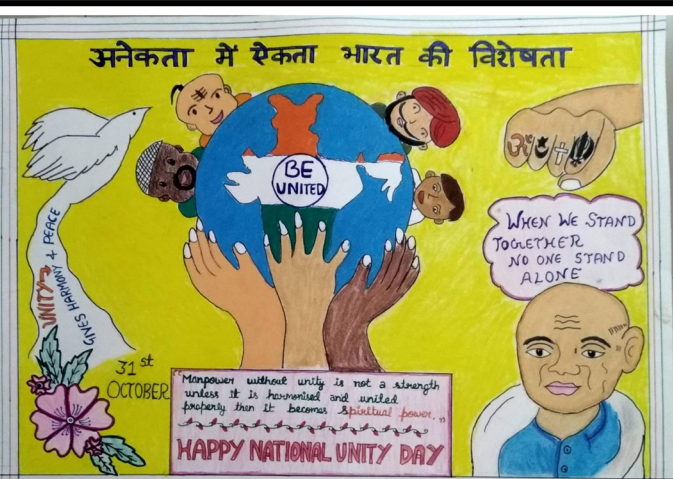 अनेकता में ऐकता भारत की विशेषता
BE
UNITED
ॐ
UNITY →
GIVES HARMONY & PEACE
WHEN WE STAND
TOGETHER
NO ONE STAND
ALONE
31st
OCTOBER
"Manpower without unity is not a strength
unless it is harmonised and united
properly then it becomes spiritual power.„
HAPPY NATIONAL UNITY DAY